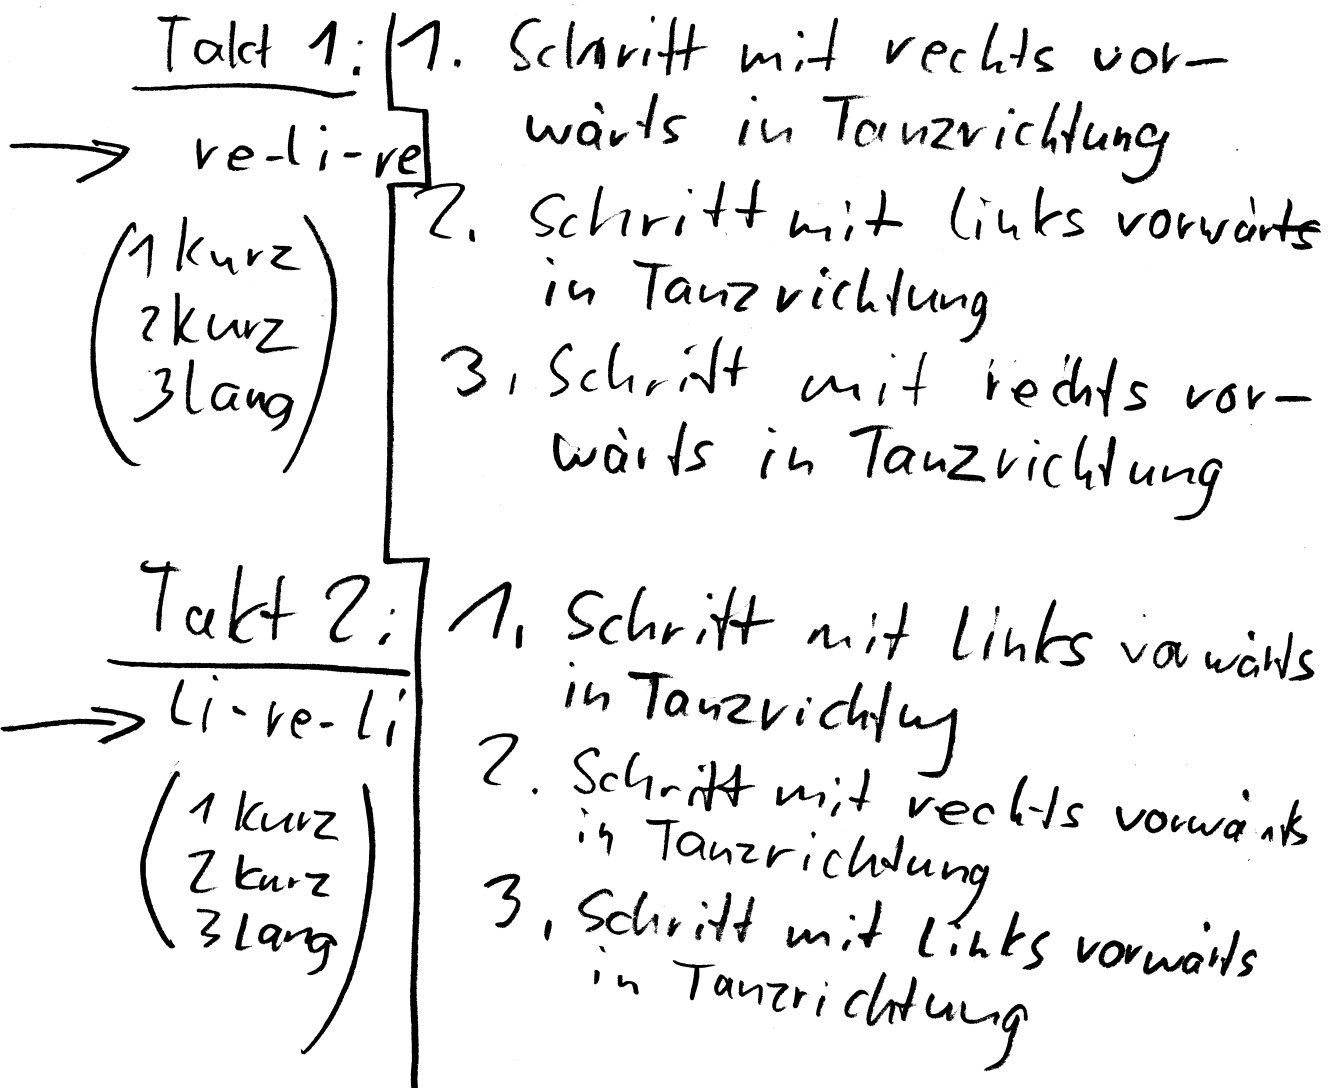 Takt 1:
re-li-re
(1 kurz
2 kurz
3 lang)
1. Schritt mit rechts vor-
wärts in Tanzrichtung
2. Schritt mit links vorwärts
in Tanzrichtung
3. Schritt mit rechts vor-
wärts in Tanzrichtung
Takt 2:
li-re-li
(1 kurz
2 kurz
3 lang)
1. Schritt mit links vorwärts
in Tanzrichtung
2. Schritt mit rechts vorwärts
in Tanzrichtung
3. Schritt mit links vorwärts
in Tanzrichtung